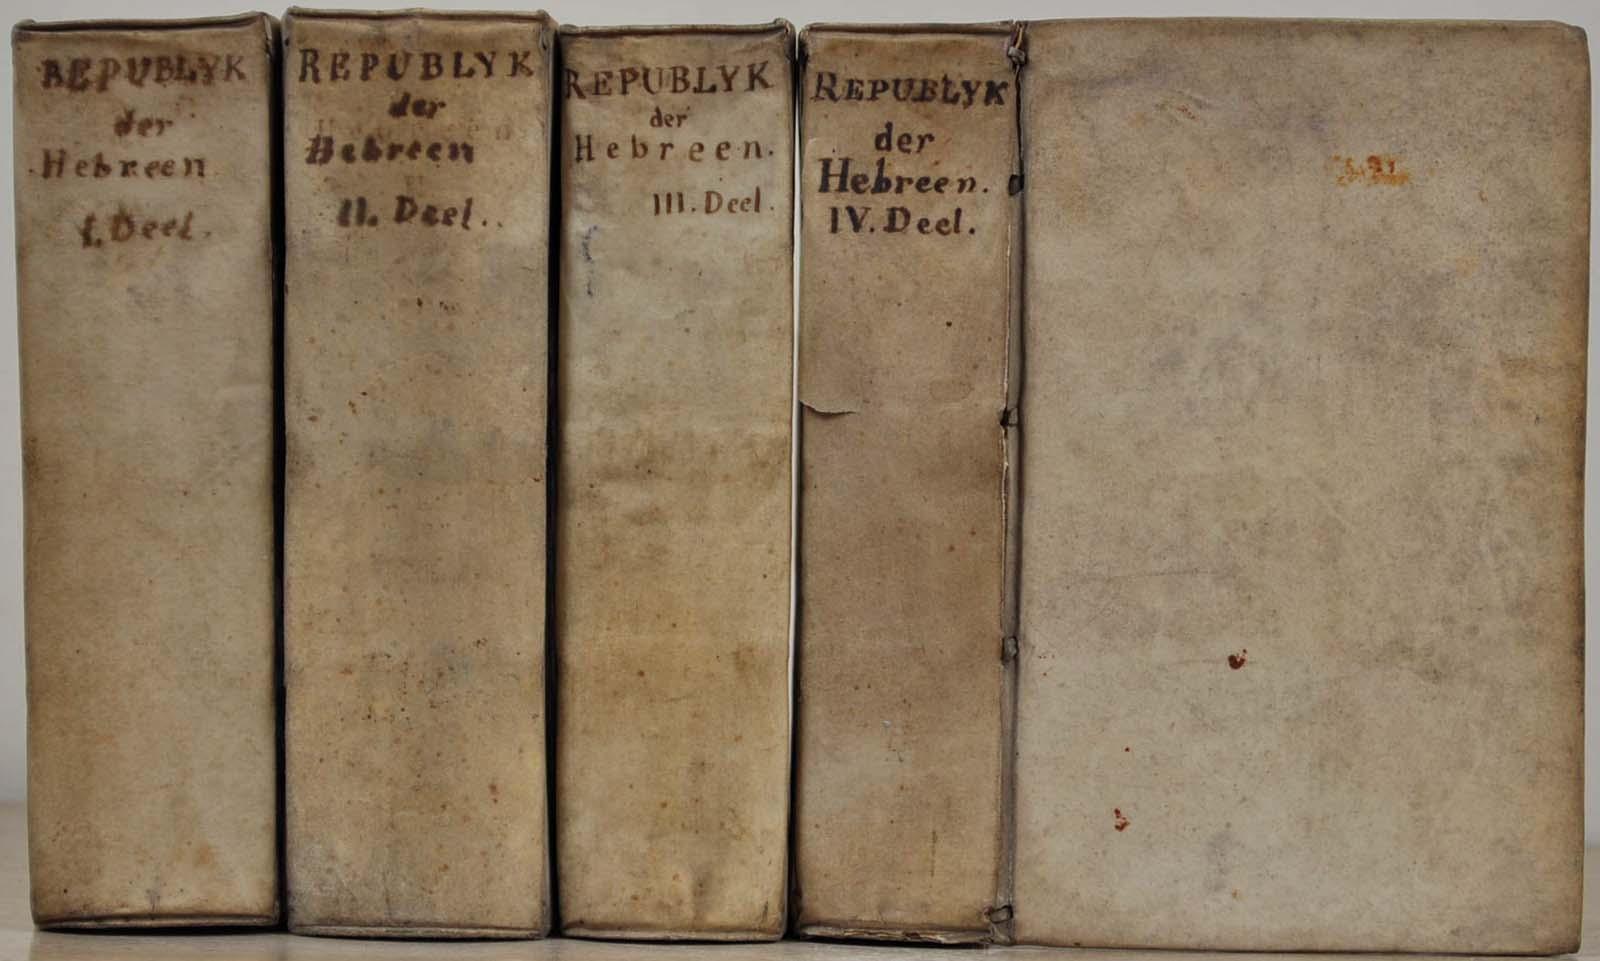 REPUBLYK
der
Hebreen
I. Deel.
REPUBLYK
der
Hebreen
II. Deel.
REPUBLYK
der
Hebreen.
III. Deel.
REPUBLYK
der
Hebreen.
IV. Deel.